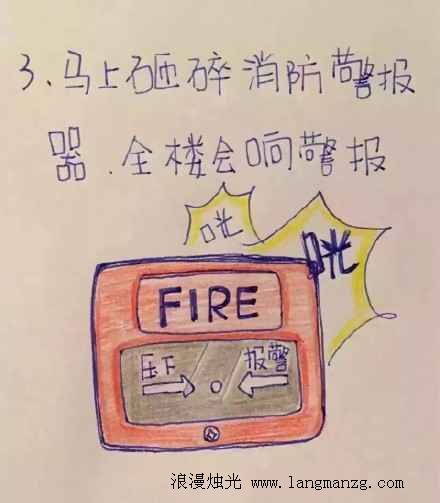 3、马上砸碎消防警报
器.全楼会响警报
咣
咣
FIRE
压下
报警
浪漫烛光 www.langmanzg.com